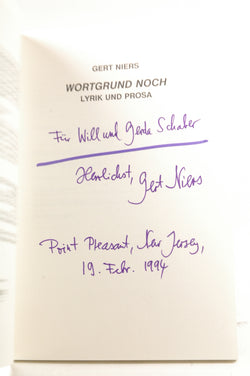 GERT NIERS
WORTGRUND NOCH
LYRIK UND PROSA
Für Will und Gerda Schaber
Herzlichst, Gert Niers
Point Pleasant, New Jersey,
19. Febr. 1994